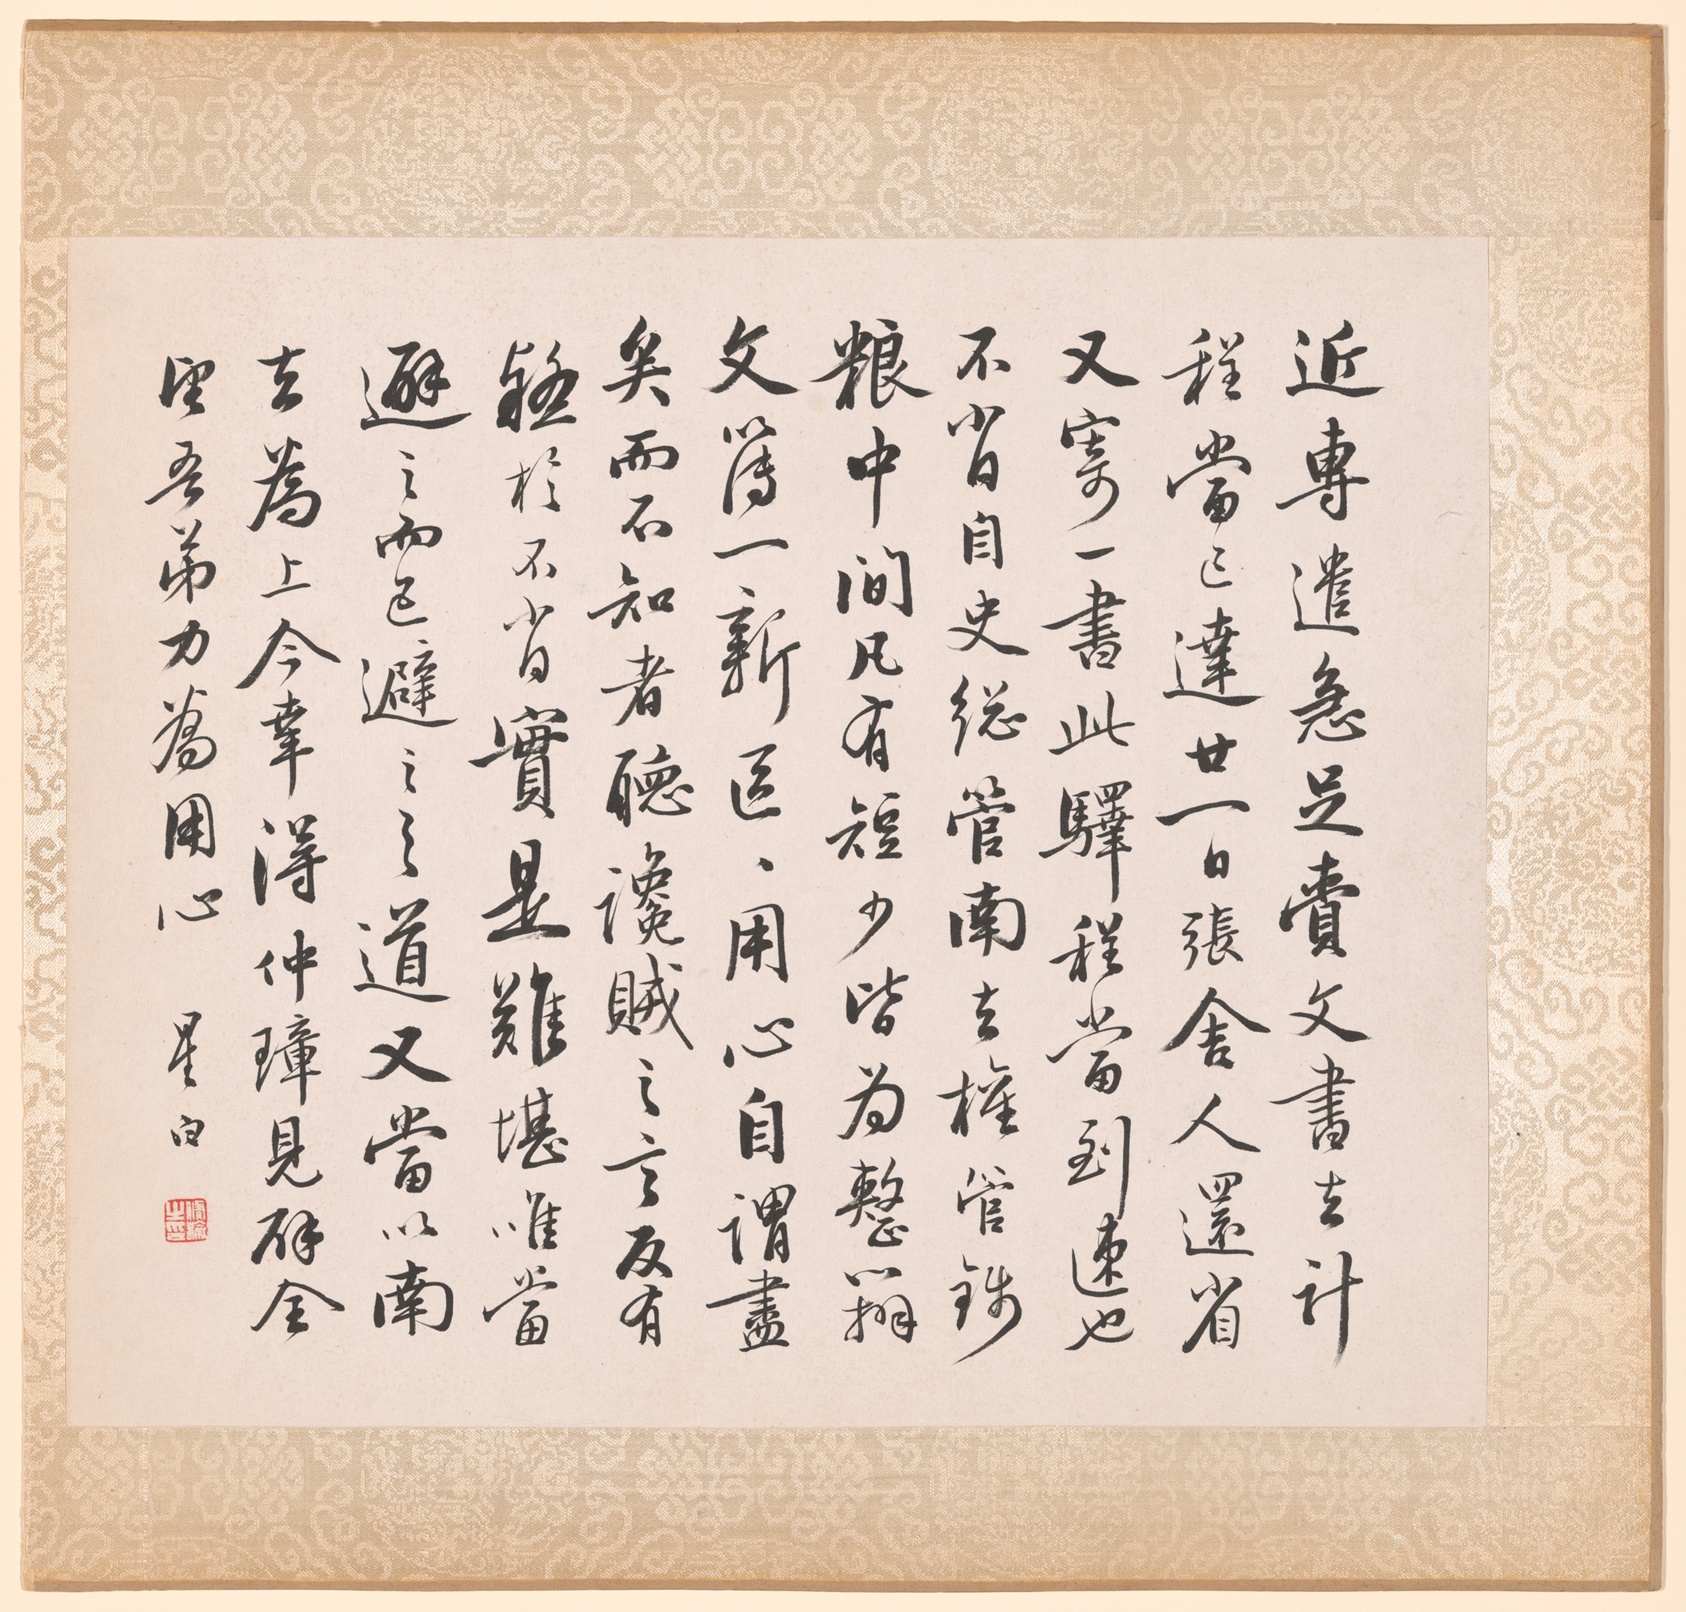 近專遣急足賫文書去計
程當已達廿一日張舍人還省
又寄一書此驛程當到速也
不省自史総管南去權管錢
粮中間凡有短少皆为整辦
文薄一新区、用心自謂盡
矣而不知者聴讒賊之言反有
疑於不省實是難堪唯當
避之而已避之之道又當以南
去為上今幸得仲璋見研全
望吾弟力為用心 星白